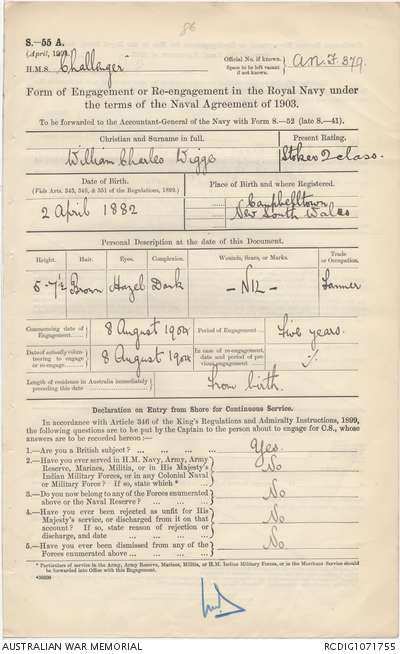 86
S.—55 A.
(April, 1904.)
H.M.S. Challenger
Official No. if known.
Space to be left vacant
if not known.
A.N.F. 379.
Form of Engagement or Re-engagement in the Royal Navy under
the terms of the Naval Agreement of 1903.
To be forwarded to the Accountant-General of the Navy with Form S.—52 (late S.—41).
Christian and Surname in full.
Present Rating.
William Charles Wiggs
Stoker 2 class.
Date of Birth.
(Vide Arts. 345, 346, & 351 of the Regulations, 1899.)
Place of Birth and where Registered.
2 April 1882
Campbelltown
New South Wales
Personal Description at the date of this Document.
Height. Hair. Eyes. Complexion. Wounds, Scars, or Marks. Trade or Occupation.
5-7½ Brown Hazel Dark — NIL —
Commencing date of Engagement
8 August 1904
Period of Engagement
Five years.
Date of actually volunteering to engage or re-engage
8 August 1904
In case of re-engagement, date and period of previous engagement
Length of residence in Australia immediately preceding this date
from birth.
Declaration on Entry from Shore for Continuous Service.
In accordance with Article 346 of the King's Regulations and Admiralty Instructions, 1899,
the following questions are to be put by the Captain to the person about to engage for C.S., whose
answers are to be recorded hereon :—
1.—Are you a British subject? ... ... ... ... Yes.
2.—Have you ever served in H.M. Navy, Army, Army
Reserve, Marines, Militia, or in His Majesty's
Indian Military Forces, or in any Colonial Naval
or Military Force? If so, state which * ... ... No
3.—Do you now belong to any of the Forces enumerated
above or the Naval Reserve? ... ... ... No
4.—Have you ever been rejected as unfit for His
Majesty's service, or discharged from it on that
account? If so, state reason of rejection or
discharge, and date ... ... ... ... No
5.—Have you ever been dismissed from any of the
Forces enumerated above ... ... ... ... No
* Particulars of service in the Army, Army Reserve, Marines, Militia, or H.M. Indian Military Forces, or in the Merchant Service should
be forwarded into Office with this Engagement.
AUSTRALIAN WAR MEMORIAL
RCDIG1071755